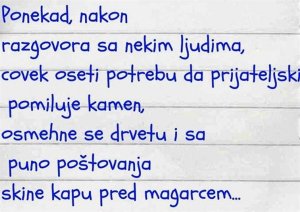 Ponekad, nakon
razgovora sa nekim ljudima,
covek oseti potrebu da prijateljski
pomiluje kamen,
osmehne se drvetu i sa
puno poštovanja
skine kapu pred magarcem...